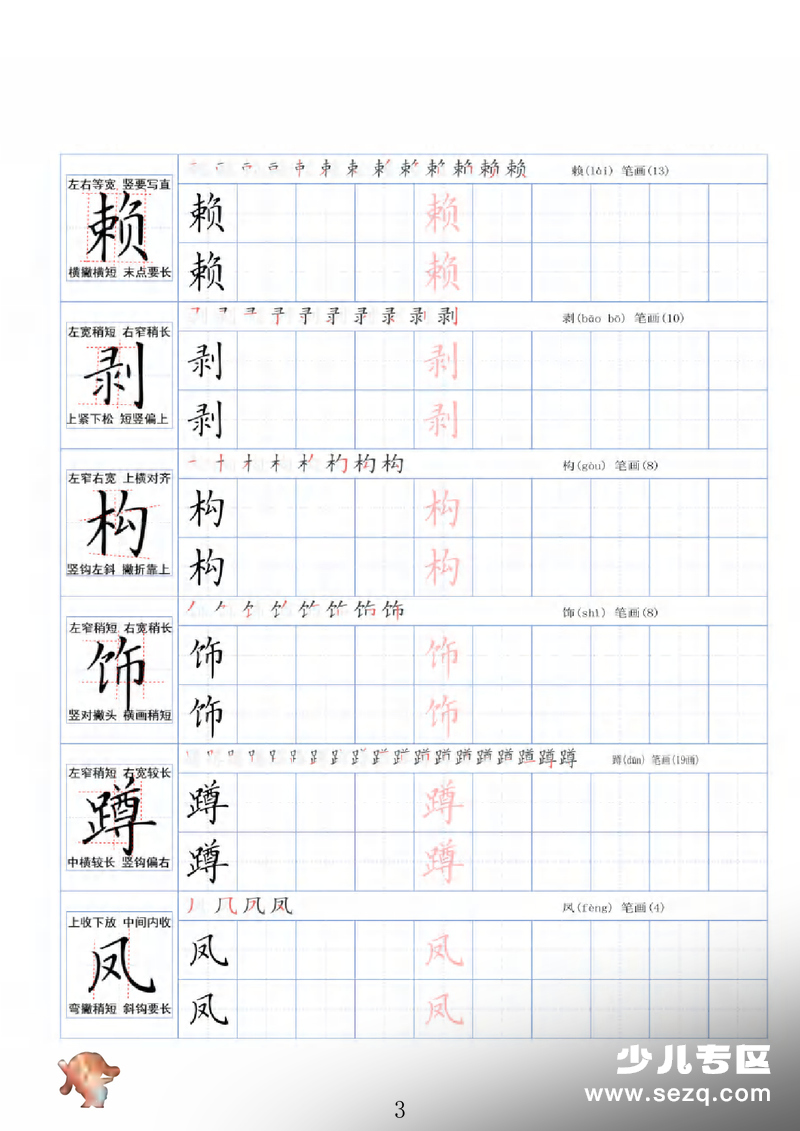 赖(lài) 笔画(13)
左右等宽 竖要写直
赖
横撇横短 末点要长
赖 赖
赖 赖
剥(bāo bō) 笔画(10)
左宽稍短 右窄稍长
剥
上紧下松 短竖偏上
剥 剥
剥 剥
构(gòu) 笔画(8)
左窄右宽 上横对齐
构
竖钩左斜 撇折靠上
构 构
构 构
饰(shì) 笔画(8)
左窄稍短 右宽稍长
饰
竖对撇头 横画稍短
饰 饰
饰 饰
蹲(dūn) 笔画(19画)
左窄稍短 右宽较长
蹲
中横较长 竖钩偏右
蹲 蹲
蹲 蹲
凤(fèng) 笔画(4)
上收下放 中间内收
凤
弯撇稍短 斜钩要长
凤 凤
凤 凤
少儿专区
www.sezq.com
3